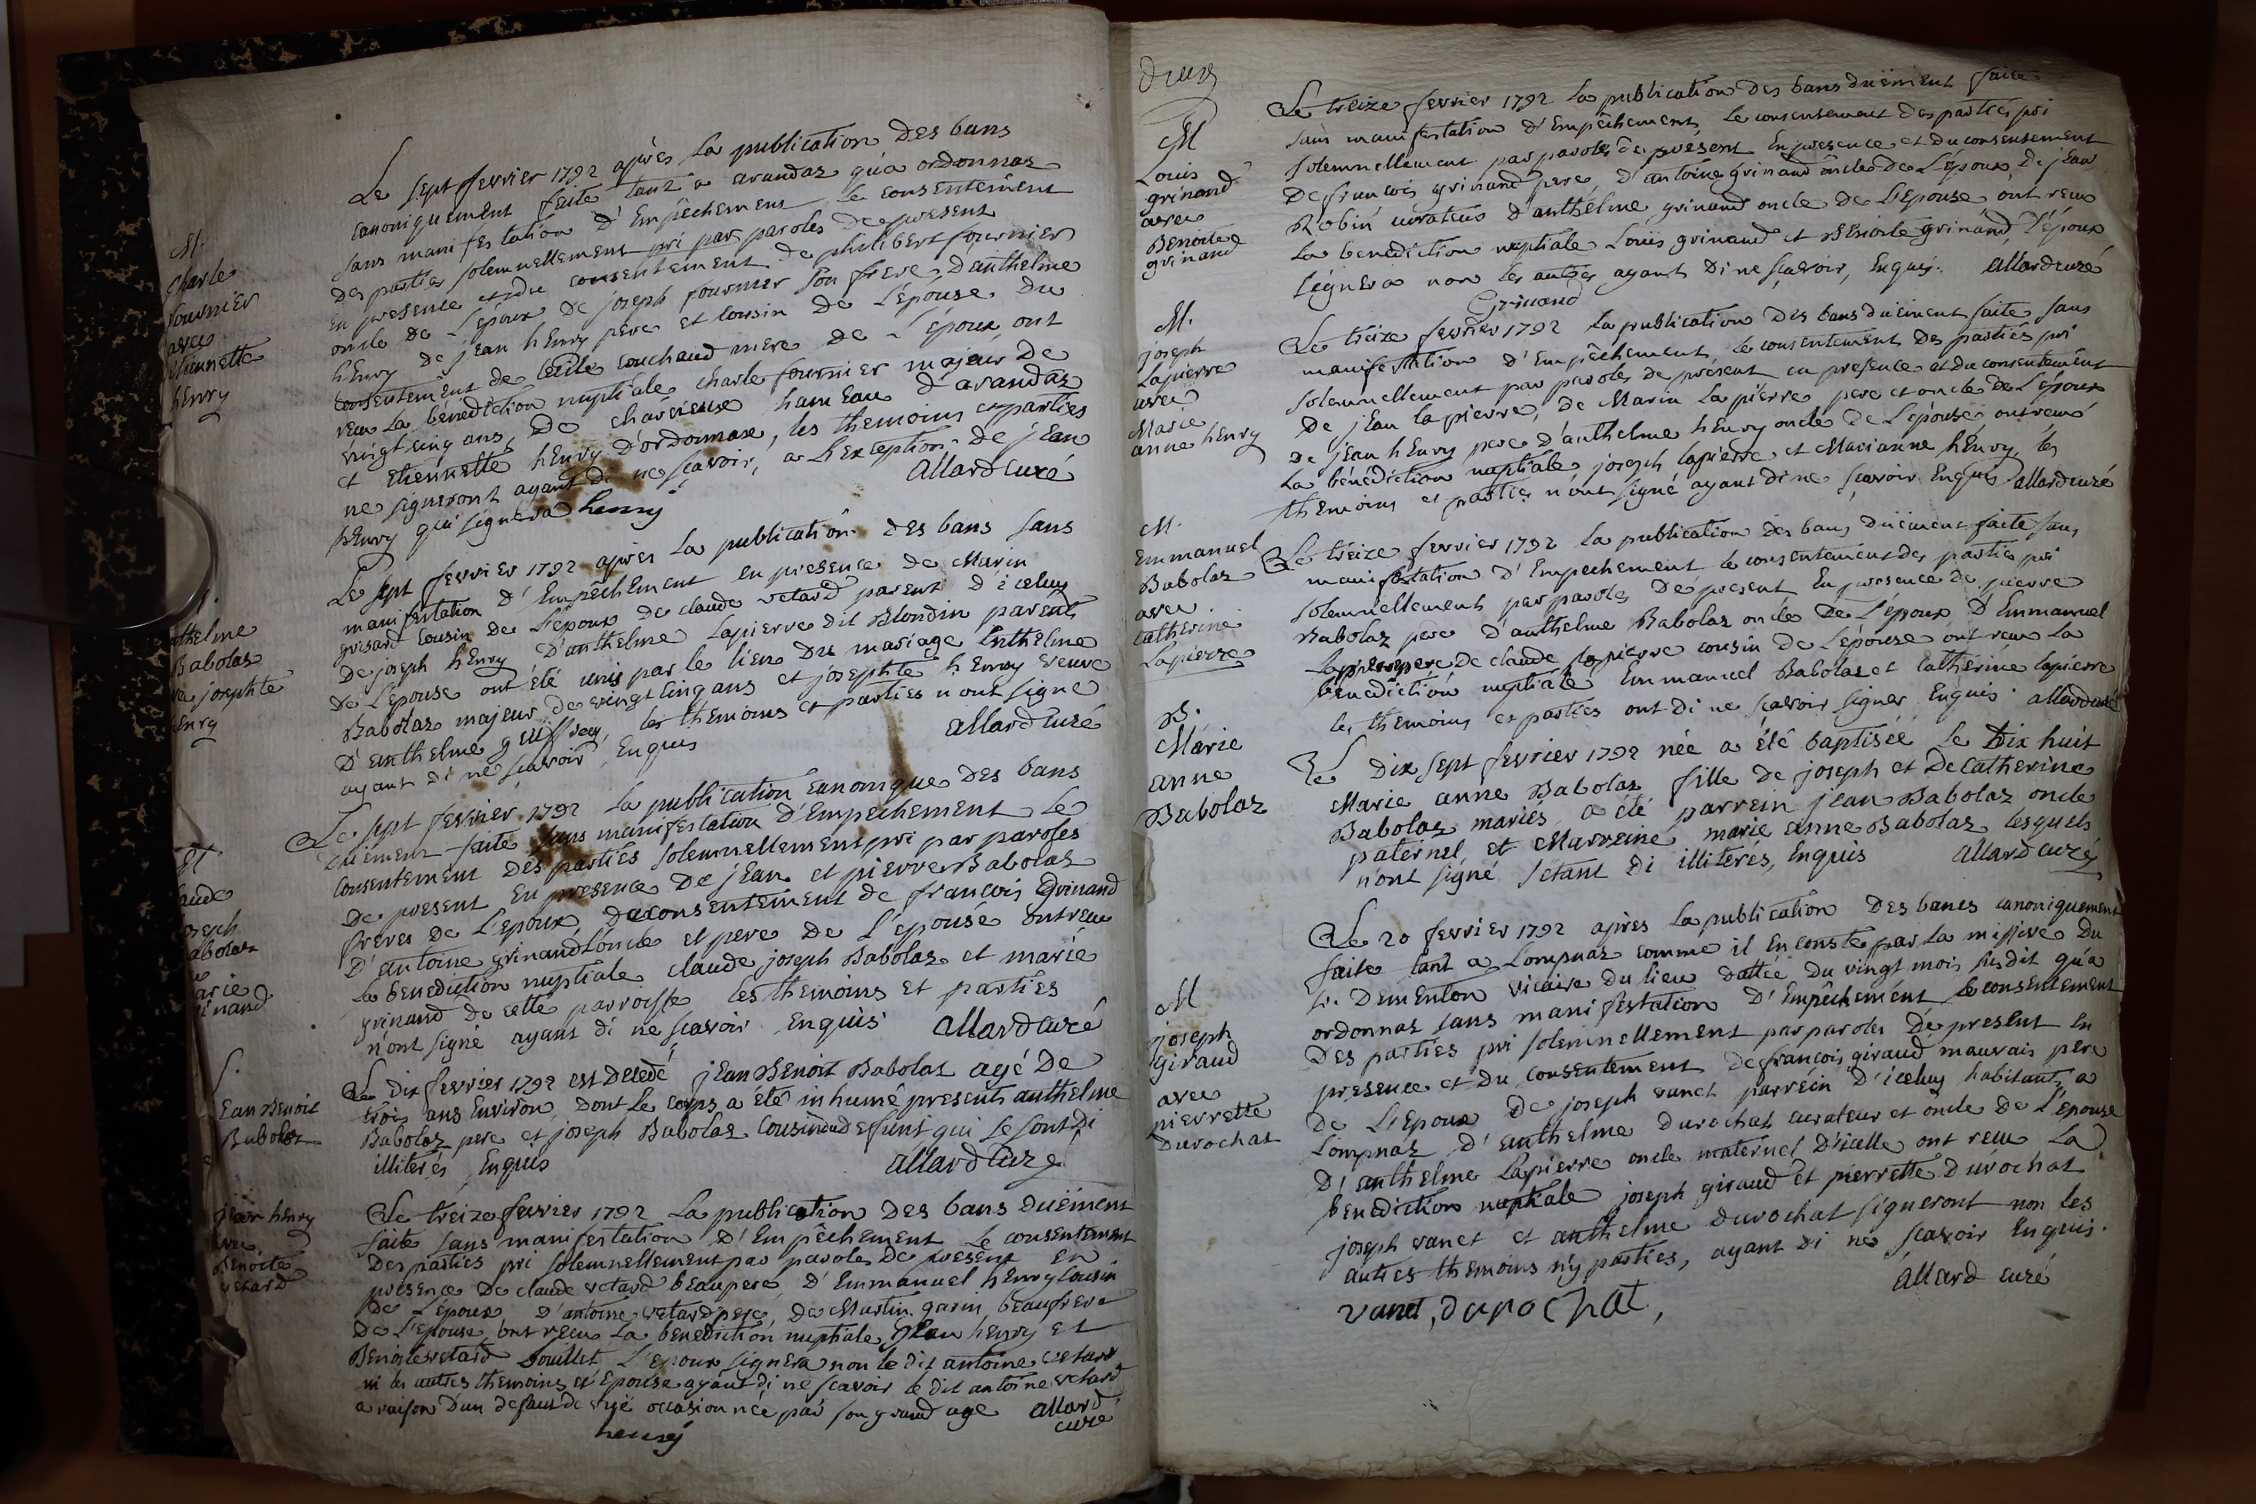 M.
Charle
fournier
avec
etiennette
henry
Le sept fevrier 1792 après la publication des bans
canoniquement faite tant a arandaz qu'a ordonnaz
sans manifestation d'Empêchement le consentement
des parties solemnellement pri par paroles de present
en presence et du consentement de philibert fournier
oncle de L'epoux de joseph fournier son frere, d'anthelme
henry de jean henry pere et cousin de L'épouse du
consentement de couchaud mere de L'époux ont
reçu la bénédiction nuptiale charle fournier majeur de
vingt cinq ans, de hameau d'arandaz
et etiennette henry d'ordonnaz, les themoins et parties
ne signeront ayant di ne sçavoir, a L'exception de jean
henry qui signera henry allard curé
thelme
Babolaz
josephte
henry
Le sept fevrier 1792 après la publication des bans sans
manifestation d'Empêchement en presence de Marin
grisard cousin de L'époux de claude vetard parent d'iceluy
de joseph henry d'anthelme Lapierre dit Blondin parents
de L'epouse ont été unis par le lien du mariage Anthelme
Babolaz majeur de vingt cinq ans et josephte henry veuve
d'anthelme les themoins et parties n'ont signé
ayant di ne scavoir, Enquis allard curé
M
aude
oseph
abolaz
arie
inand
Le sept fevrier 1792 la publication canonique des bans
duëment faite sans manifestation d'Empechement Le
consentement des parties solemnellement pri par paroles
de present En presence de jean et pierre Babolaz
freres de L'epoux, du consentement de françois Grinand
d'antoine grinand L'oncle et pere de L'épouse ont reçu
la benediction nuptiale claude joseph Babolaz et marie
grinand de cette parroisse les themoins et parties
n'ont signé ayant di ne scavoir Enquis allard curé
S.
jean Benoit
Babolaz
Le dix fevrier 1792 est décédé jean Benoit Babolaz agé de
trois ans Environ, dont le corps a été inhumé presents anthelme
Babolaz pere et joseph Babolaz cousin du defunt qui se sont di
illiterés Enquis allard curé
jean henry
avec
Benoite
vetard
Le treize fevrier 1792 La publication des bans duëment
faite sans manifestation d'Empêchement Le consentement
des parties pri solemnellement par paroles de present en
presence de claude vetard beaupere, d'Emmanuel henry cousin
de L'époux d'antoine vetard pere, de Martin garin beaufrere
de L'epouse, ont reçu la benediction nuptiale jean henry et
Benoite vetard L'epoux signera non le dit antoine vetard
ni les autres themoins et Epouse ayant di ne scavoir le dit antoine vetard
a raison d'un defaut de vuë occasionnée par son grand age allard
henry curé
M
Louis
grinand
avec
Benoite
grinand
Le treize fevrier 1792 la publication des bans duëment faite
sans manifestation d'Empêchement, le consentement des parties pri
solemnellement par paroles de present En presence et du consentement
de françois grinand pere, d'antoine grinand oncle de L'epoux, de jean
Robin curateur d'anthelme grinand oncle de L'épouse ont reçu
la benediction nuptiale Louis grinand et Benoite grinand, L'époux
signera non les autres ayant di ne sçavoir, Enquis. allard curé
Grinand
M.
joseph
Lapierre
avec
Marie
anne henry
Le treize fevrier 1792 la publication des bans duëment faite sans
manifestation d'Empêchement, le consentement des parties pri
solemnellement par paroles de present en presence et du consentement
de jean lapierre, de Marin lapierre pere et oncle de L'epoux
de jean henry pere d'anthelme henry oncle de L'épouse ont reçu
la bénédiction nuptiale joseph lapierre et Marianne henry, les
themoins et parties n'ont signé ayant di ne sçavoir Enquis allard curé
M.
Emmanuel
Babolaz
avec
catherine
Lapierre
Le treize fevrier 1792 la publication des bans duëment faite sans
manifestation d'Empechement le consentement des parties pri
solemnellement par paroles de present En presence de pierre
Babolaz pere d'anthelme Babolaz oncle de L'époux d'Emmanuel
Lapierre pere de claude lapierre cousin de L'épouse ont reçu la
benediction nuptiale Emmanuel Babolaz et catherine lapierre
les themoins et parties ont di ne scavoir signer Enquis allard curé
B.
Marie
anne
Babolaz
Le dix sept fevrier 1792 née a été baptisée Le dix huit
Marie anne Babolaz fille de joseph et de catherine
Babolaz mariés, a été parrein jean Babolaz oncle
paternel et Marreine marie anne Babolaz lesquels
n'ont signé s'étant di illiterés, Enquis allard curé
M
joseph
giraud
avec
pierrette
Durochat
Le 20 fevrier 1792 après la publication des bancs canoniquement
faite tant a Lompnaz comme il En conste par la missive du
sr. Dementon vicaire du lieu dattée du vingt mois susdit qu'a
ordonnaz sans manifestation d'Empêchement le consentement
des parties pri solemnellement par paroles de present En
presence et du consentement de françois giraud mauvais pere
de L'epoux de joseph vanet parrein d'iceluy habitants a
Lompnaz d'anthelme Durochat curateur et oncle de L'epouse
d'anthelme Lapierre oncle maternel d'icelle ont reçu la
benediction nuptiale joseph giraud et pierrette durochat
joseph vanet et anthelme durochat signeront non les
autres themoins n'y parties, ayant di ne scavoir Enquis.
allard curé
vanet, durochat,